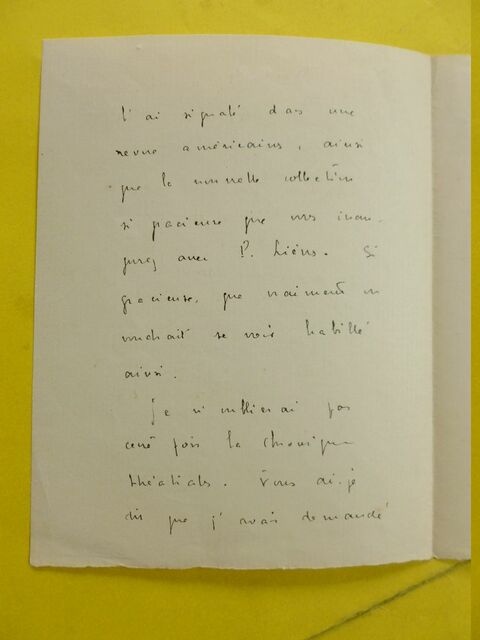 l'ai signalé dans une
revue américaine, ainsi
que la nouvelle collection
si gracieuse que vous inau-
gurez avec P. Liéns. Si
gracieuse, que vraiment on
voudrait se voir habillé
ainsi.
Je n'oublierai pas
cette fois la chronique
théâtrale. Vous ai-je
dit que j'avais demandé